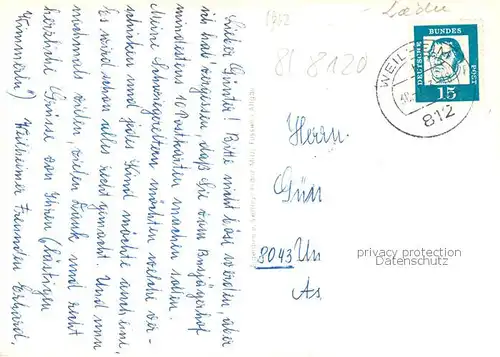 Lieber Günter! Bitte nicht bös werden, aber
ich hab vergessen, daß Sie vom Burgjägerhof
mindestens 10 Postkarten machen sollen.
Meine Schwiegereltern möchten welche ver-
schicken und jedes Kind möchte auch eine.
Es wird schon alles recht gemacht. Und nun
nochmals vielen, vielen Dank und recht
herzliche Grüsse von Ihren
Weilheimer Freunden Erhard,
81 8120
DEUTSCHE BUNDES POST
15
WEILHEIM
812
Herrn
Gün
8043 Un
As
privacy protection
Datenschutz